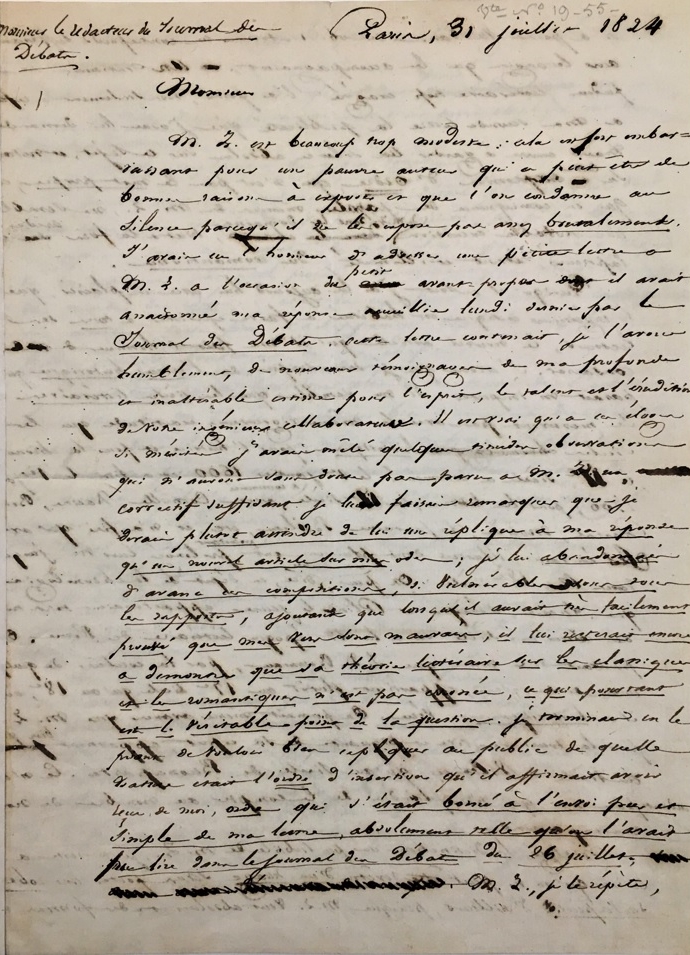 Vte N° 19-55-
Monsieur le rédacteur du Journal des
Débats.
Paris, 31 juillet 1824
Monsieur
M. Z. est beaucoup trop modeste ; cela est fort embar=
rassant pour un pauvre auteur qui a peut-être de
bonnes raisons à exposer et que l'on condamne au
silence parcequ'il ne les expose pas assez brutalement.
J'avais eu l'honneur d'adresser une petite lettre à
M. Z. à l'occasion du petit avant-propos dont il avait
assaisonné ma réponse accueillie lundi dernier par le
Journal des Débats. cette lettre contenait, je l'avoue
humblement, de nouveaux témoignages de ma profonde
et inaltérable estime pour l'esprit, le talent et l'érudition
de votre ingénieux collaborateur. Il est vrai qu'à ces éloges
si mérités j'avais mêlé quelques timides observations
qui n'auront sans doute pas paru à M. Z. un
correctif suffisant je lui faisais remarquer que je
devais plutôt attendre de lui une réplique à ma réponse
qu'un nouvel article sur mes odes ; je lui abandonnais
d'avance ces compositions, si vulnérables sous tous
les rapports, ajoutant que lorsqu'il aurait très facilement
prouvé que mes vers sont mauvais, il lui resterait encore
à démontrer que sa théorie littéraire sur les classiques
et les romantiques n'est pas erronée, ce qui pourtant
est le véritable point de la question. je terminais en le
priant de vouloir bien expliquer au public de quelle
nature était l'ordre d'insertion qu'il affirmait avoir
reçu de moi, ordre qui s'était borné à l'envoi pur et
simple de ma lettre, absolument telle qu'on l'avait
pu lire dans le Journal des Débats du 26 juillet.
M. Z., je le répète,